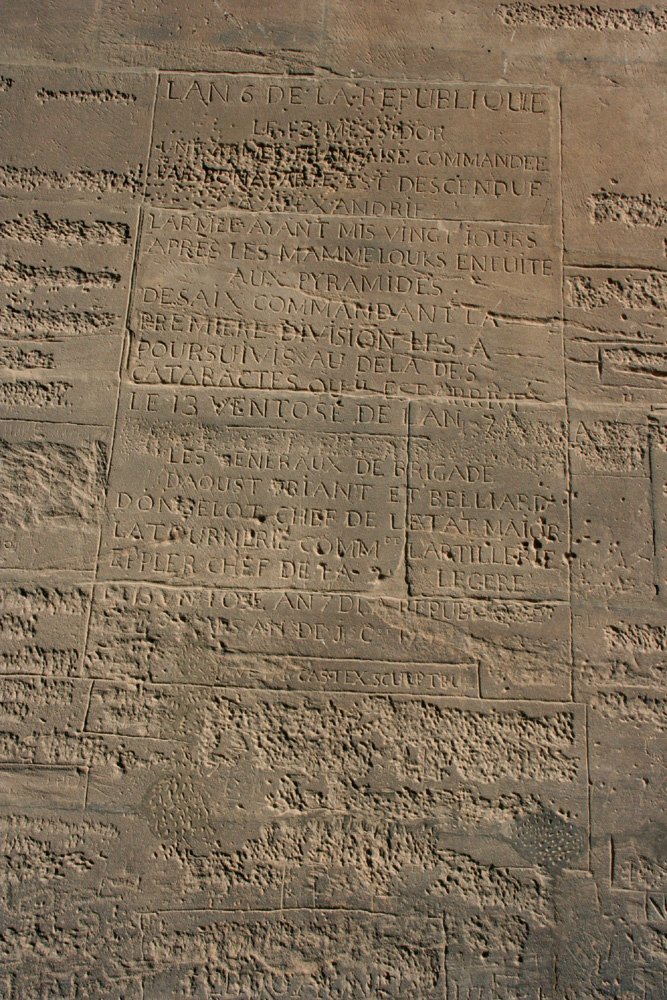 LAN 6 DE LA REPUBLIQUE
LE 13 MESSIDOR
UNE ARMEE FRANCAISE COMMANDEE
PAR BONAPARTE EST DESCENDUE
A ALEXANDRIE
L'ARMEE AYANT MIS VINGT JOURS
APRES LES MAMMELOUKS EN FUITE
AUX PYRAMIDES
DESAIX COMMANDANT LA
PREMIERE DIVISION LES A
POURSUIVIS AU DELA DES
CATARACTES OU IL EST ARRIVE
LE 13 VENTOSE DE L'AN 7
LES GENERAUX DE BRIGADE
DAOUST FRIANT ET BELLIARD
DONZELOT CHEF DE L'ETAT MAJOR
LATOURNERIE COMM^T L'ARTILLERIE
EPPLER CHEF DE LA LEGERE
AN 7 DE LA REPUBLIQUE
AN DE J. C.
CASTEX SCULPT